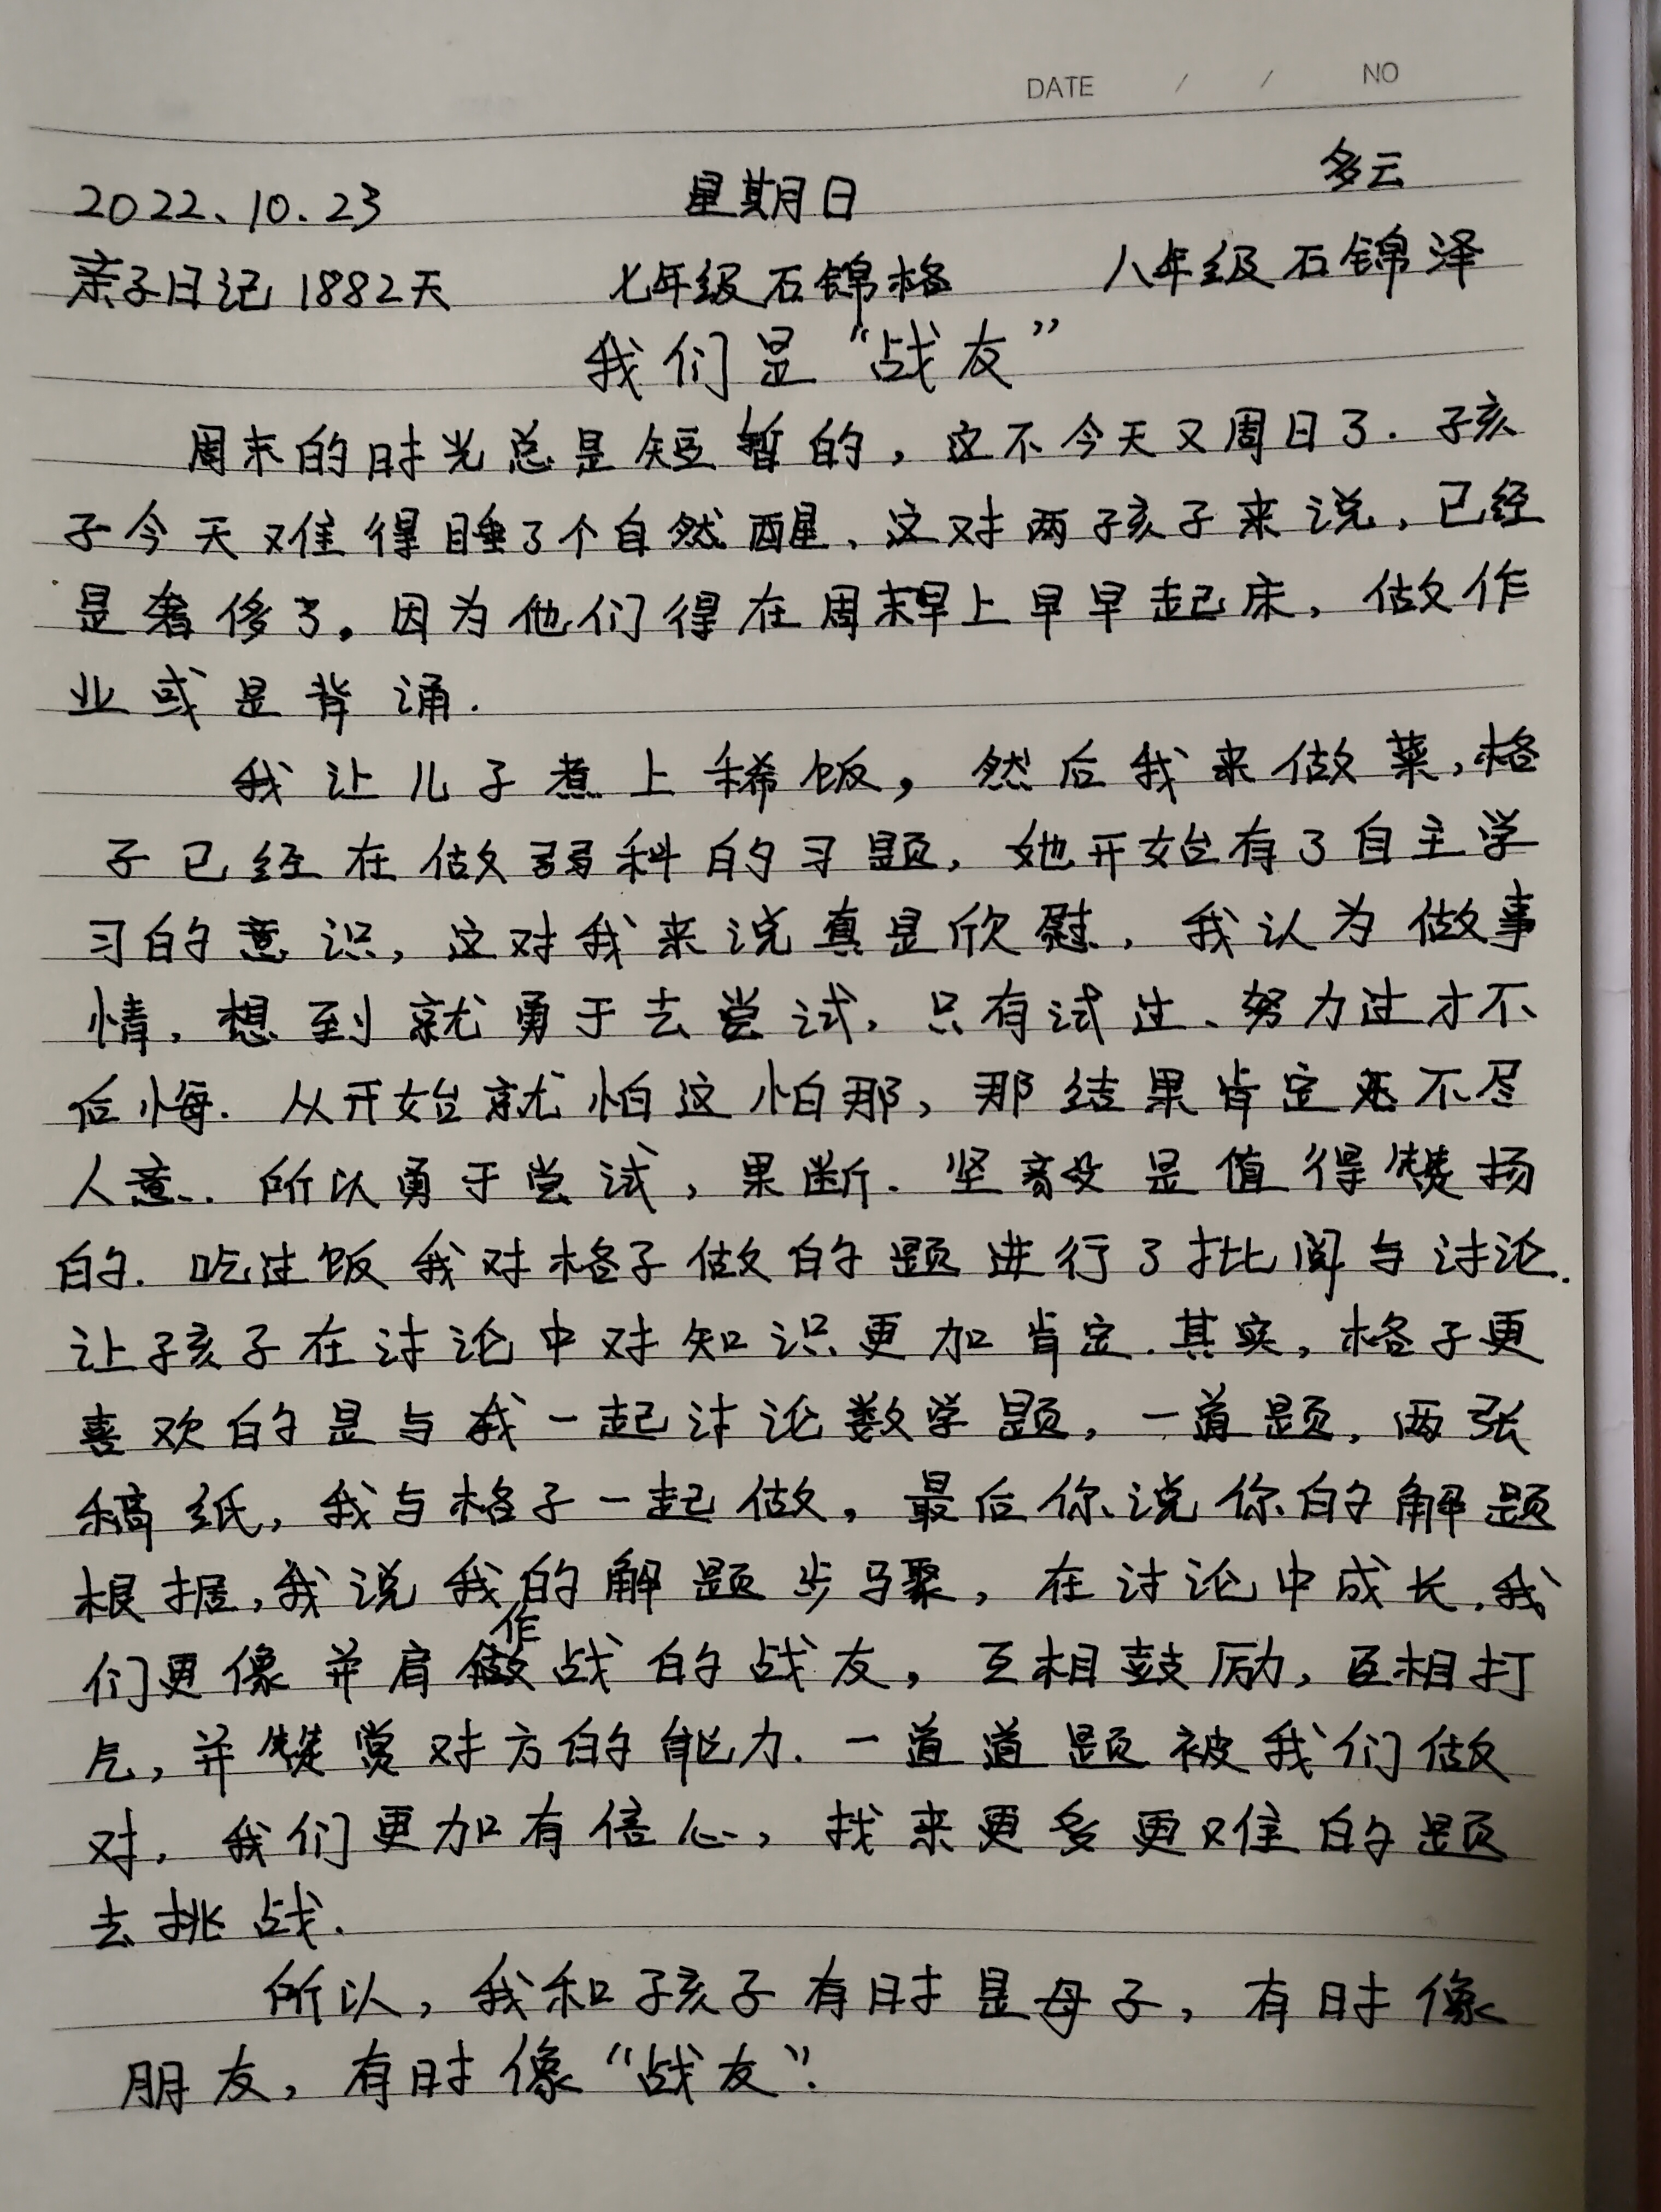 DATE / / NO
2022、10.23 星期日 多云
亲子日记1882天 七年级石锦格 八年级石锦泽
我们是“战友”
周末的时光总是短暂的，这不今天又周日了.孩
子今天难得睡了个自然醒、这对两孩子来说，已经
是奢侈了。因为他们得在周末早上早早起床，做作
业或是背诵.
我让儿子煮上稀饭，然后我来做菜，格
子已经在做弱科的习题，她开始有了自主学
习的意识，这对我来说真是欣慰，我认为做事
情，想到就勇于去尝试，只有试过、努力过才不
后悔.从开始就怕这怕那，那结果肯定不尽
人意.所以勇于尝试，果断.坚毅是值得赞扬
的.吃过饭我对格子做的题进行了批阅与讨论.
让孩子在讨论中对知识更加肯定.其实，格子更
喜欢的是与我一起讨论数学题，一道题，两张
稿纸，我与格子一起做，最后你说你的解题
根据，我说我的解题步骤，在讨论中成长.我
们更像并肩作战的战友，互相鼓励，互相打
气，并赞赏对方的能力.一道道题被我们做
对，我们更加有信心，找来更多更难的题
去挑战.
所以，我和孩子有时是母子，有时像
朋友，有时像“战友”.